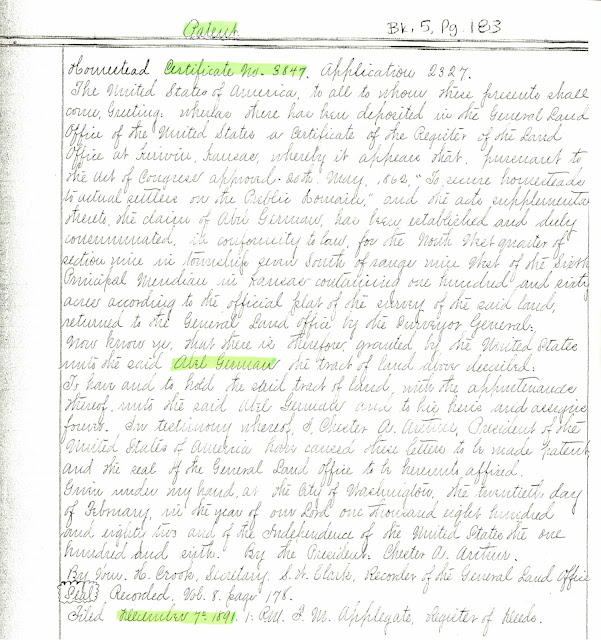 Patent
Bk. 5, Pg. 183
Homestead Certificate No. 3847. Application 2327.
The United States of America, to all to whom these presents shall
come, Greeting: whereas there has been deposited in the General Land
Office of the United States a Certificate of the Register of the Land
Office at Kirwin, Kansas, whereby it appears that, pursuant to
the Act of Congress approved 20th May, 1862, "To secure homesteads
to actual settlers on the Public Domain," and the acts supplemental
thereto, the claim of Abel German, has been established and duly
consummated, in conformity to law, for the North West quarter of
section nine in township seven South of range nine West of the Sixth
Principal Meridian in Kansas containing one hundred and sixty
acres according to the official plat of the survey of the said land,
returned to the General Land Office by the Surveyor General:
Now know ye, that there is therefore, granted by the United States
unto the said Abel German the tract of land above described:
To have and to hold the said tract of land, with the appurtenances
thereof, unto the said Abel German and to his heirs and assigns
forever. In testimony whereof, I Chester A. Arthur, President of the
United States of America have caused these letters to be made patent
and the seal of the General Land Office to be hereunto affixed.
Given under my hand, at the City of Washington, the twentieth day
of February, in the year of our Lord one thousand eight hundred
and eighty two and of the Independence of the United States the one
hundred and sixth. By the President: Chester A. Arthur.
By Wm. H. Crook, Secretary. S. W. Clark, Recorder of the General Land Office
Seal Recorded, Vol. 8. page 178.
Filed December 7th 1891. 1. P.M. Applegate, Register of Deeds.